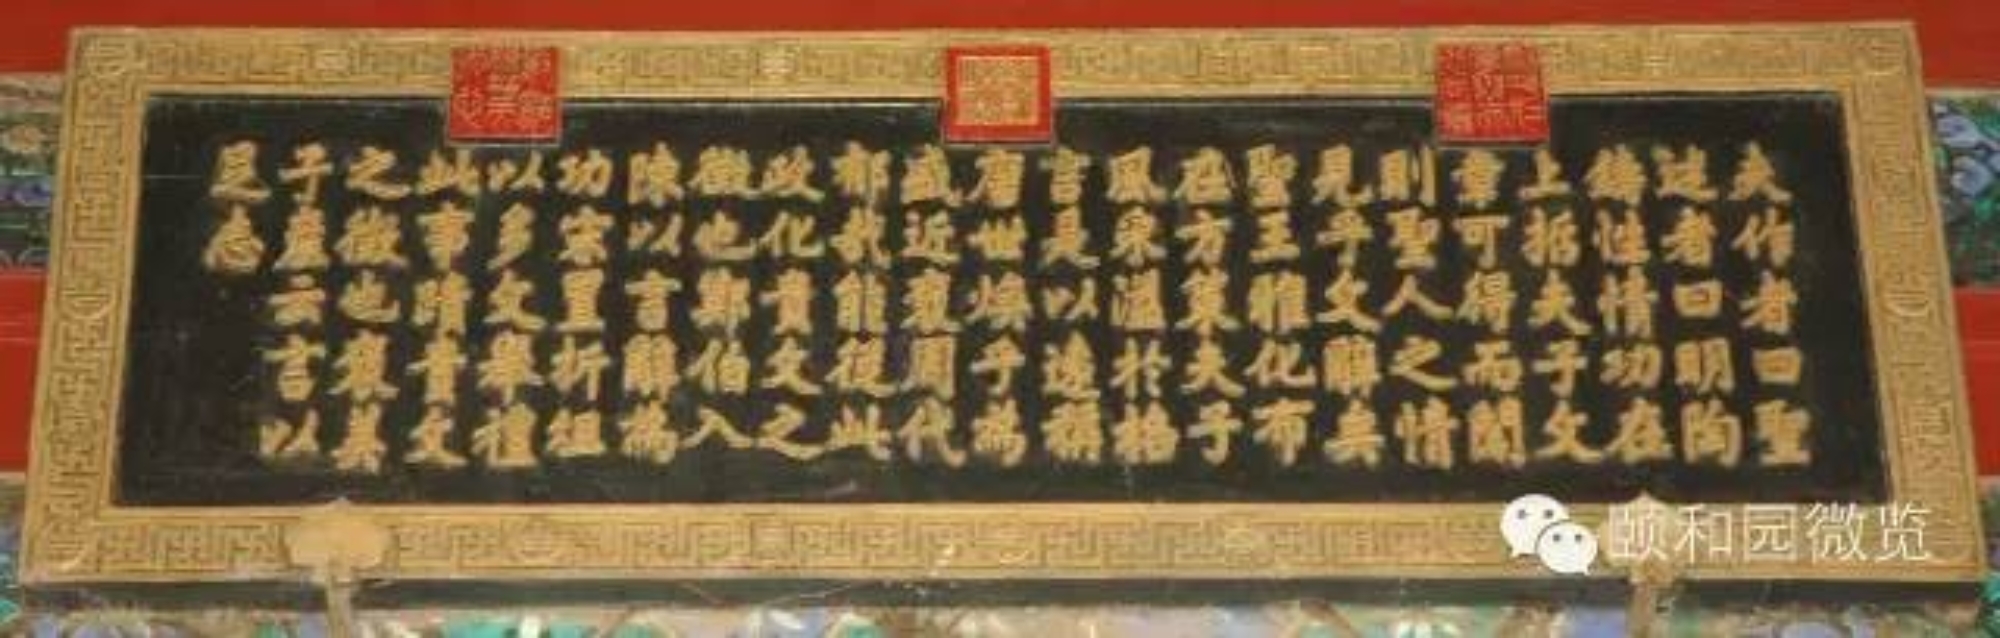 夫作者曰聖
述者曰明陶
鑄性情功在
上哲夫子文
章可得而聞
則聖人之情
見乎文辭矣
聖王雅化布
在方策夫子
風采溢於格
言是以遠稱
唐世煥乎為
盛近褒周代
郁哉能從此
政化貴文之
徵也鄭伯入
陳以言辭為
功宋置折俎
以多文舉禮
此事蹟貴文
之徵也褒其
子產云言以
足志
颐和园微览